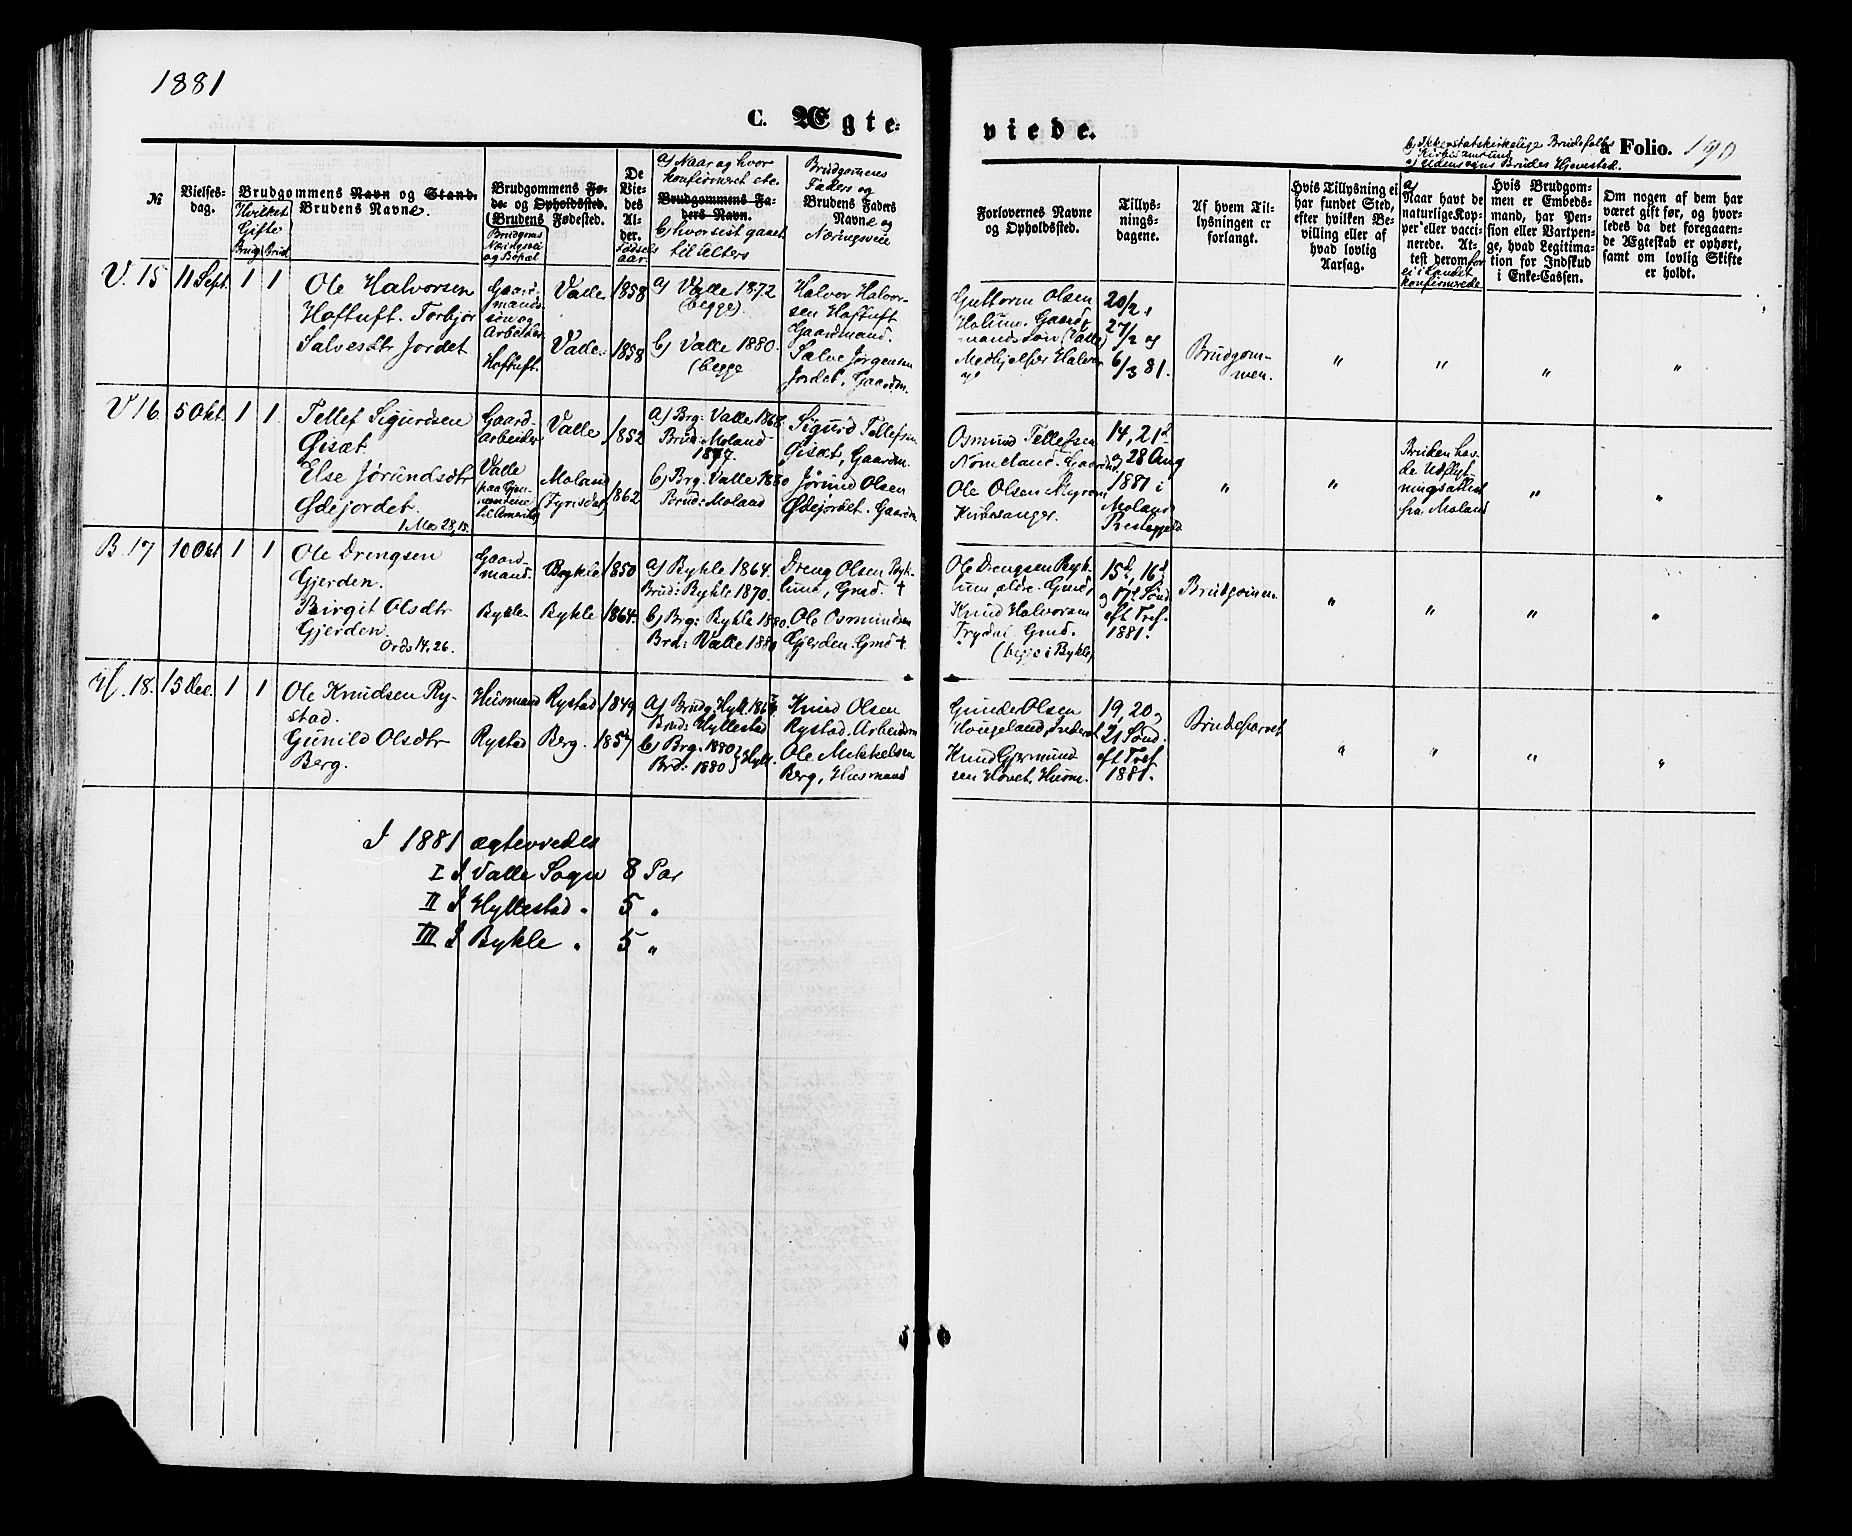 1881
C. Ægte-
viede.
b) Ikkestatskirkelige Brudefolks
Kirkesamfund
c) Udensogns Brudes Hjemsted.
à Folio. 190
№
Vielses-
dag.
Brudgommens Navn og Stand.
Brudens Navne.
Hvilket
Gifte
Brudg. Brud.
Brudgommens Fø-
de- og Opholdssted.
(Brudens Fødested.
Brudgoms
Næringsvei
og Bopæl
De
Vie-
des
Al-
der.
Fødsels
aar
a) Naar og hvor
konfirmeret etc.
Brudgommens Fa-
ders Navn.
b) hvor sist gaaet
til Alters
Brudgommens
Faders og
Brudens Faders
Navne og
Næringsveie
Forlovernes Navne
og Opholdssted.
Tillys-
nings-
dagene.
Af hvem Til-
lysningen er
forlangt.
Hvis Tillysning ei
har fundet Sted,
efter hvilken Be-
villing eller af
hvad lovlig
Aarsag.
a)
Naar havt de
naturlige Kop-
per eller vacci-
nerede. At-
test derom for
ei i Landet
konfirmerede
Hvis Brudgom-
men er Embeds-
mand, har Pen-
sion eller Vartpen-
ge, hvad Legitima-
tion for Indskud
i Enke-Cassen.
Om nogen af dem har
været gift før, og hvor-
ledes da det foregaaen-
de Ægteskab er ophørt,
samt om lovlig Skifte
er holdt.
V. 15 11 Sept. 1 1
Ole Halvorsen
Hoftuft. Torbjør
Salvesdtr Jordet
Gaard-
mands
søn og
Arbeider
Hoftuft.
Valle 1858
Valle 1858
a) Valle 1872
(begge).
b) Valle 1880.
(begge
Halvor Halvor-
sen Hoftuft
Gaardmand.
Salve Jørgensen
Jordet, Gaardm.
Guttorm Olsen
Homm. Gaard-
mandssøn (Valle)
Medhjelper Halvor
20/2,
27/2 og
6/3 81.
Brudgom-
men.
" " " "
V 16 5 Okt. 1 1
Tellef Sigurdsen
Øisæt.
Else Jørundsdtr
Ødejordet.
1 Mos 28,15.
Gaard-
arbeider
Valle
(paa Gjen-
nemreise
til Amerika)
Valle 1852
Moland
(Fyrisdal) 1862
a) Brg: Valle 1868
Brud: Moland
1877.
b) Brg: Valle 1880
Brud: Moland
Sigurd Tellefsen
Øisæt, Gaardm.
Jørund Olsen
Ødejordet. Gaardm
Osmund Tellefsen
Nomeland. Gaardmd.
Ole Olsen Myrom
Kirkesanger.
14, 21de
og 28 Aug
1881 i
Moland
Prestegjeld
" "
Bruden hav-
de Udflyt-
ningsattest
fra Moland
" "
B. 17 10 Okt 1 1
Ole Drengsen
Gjerden.
Birgit Olsdtr
Gjerden.
Ords 14, 26.
Gaard-
mand.
Bykle.
Bykle 1850
Bykle 1864.
a) Bykle 1864.
Brud: Bykle 1870.
b) Brg: Bykle 1880.
Brd: Valle 1880
Dreng Olsen Byk-
lum, Gmd. +
Ole Osmundsen
Gjerden. Gmd +
Ole Drengsen Byk-
lum, aldre. Gmd,
Knud Halvorsen
Trydal Gmd.
(begge i Bykle)
15de, 16de
og 17de Sønd.
eft Tref
1881.
Brudgommen.
" " " "
H. 18. 15 Dec. 1 1
Ole Knudsen Ry-
stad.
Gunild Olsdtr
Berg.
Husmand
Rystad
Rystad 1849
Berg. 1857
a) Brudg. Hyll. 1864
Brud: Hyllestad
b) Brg. 1880
Brd: 1880 } Hyll.
Knud Olsen
Rystad. Arbeidsm
Ole Mikkelsen
Berg, Husmand
Gunder Olsen
Hougeland, Inderst
Knud Gjermund
sen Hovet, Husm.
19, 20 og
21 Sønd.
eft Tref
1881.
Brudeparret
" " " "
I 1881 ægteviedes
I I Valle Sogn 8 Par
II I Hyllestad " 5 "
III I Bykle " 5 "